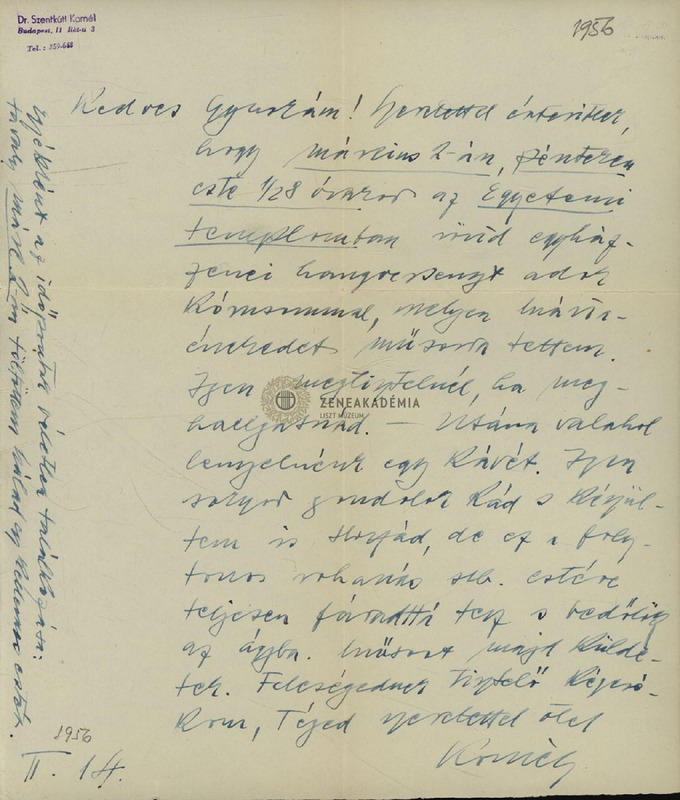 Dr. Szentkúti Kornél
Budapest, II
Tel.: 359-648
1956
Kedves Gyuszám! Szeretettel értesítlek,
hogy március 2-án, pénteken
este 1/28 órakor az Egyetemi
templomban rövid egyház-
zenei hangversenyt adok
Kórusommal, melyen Mária-
énekedet műsorra tettem.
Igen megtisztelnél, ha meg-
hallgatnád. — Utána valahol
lenyelnénk egy kávét. Igen
sokszor gondolok Rád s készül-
tem is Hozzád, de ez a foly-
tonos rohanás stb. estére
teljesen fáradttá tesz s bedőlök
az ágyba. Műsort majd külde-
tek. Feleségednek tisztelő kézcsó-
kom, Téged szeretettel ölel
Kornél
1956
II. 14.
Egyébként az időpontok véletlen találkozása:
tavaly márc. 2-án töltöttem Nálad egy kedves estét.
ZENEAKADÉMIA
LISZT MÚZEUM